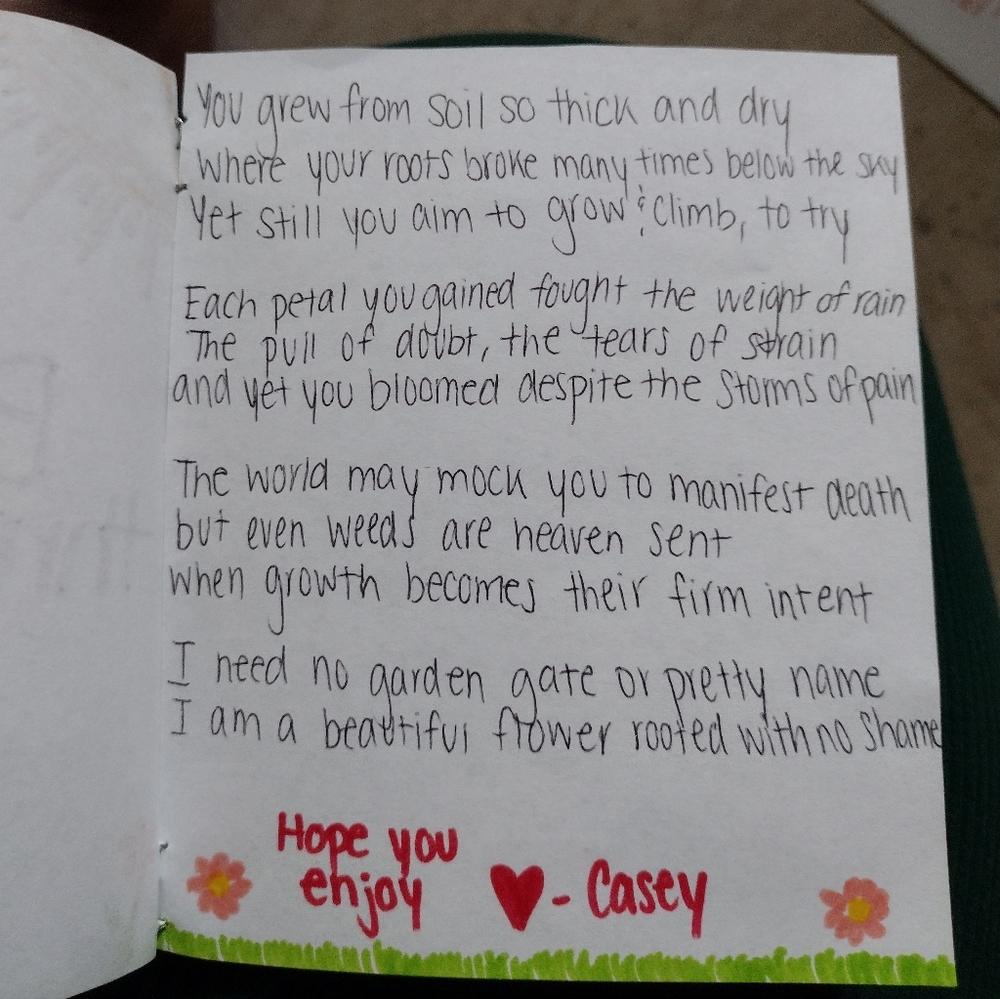 You grew from soil so thick and dry
where your roots broke many times below the sky
Yet still you aim to grow & climb, to try
Each petal you gained fought the weight of rain
The pull of doubt, the tears of strain
and yet you bloomed despite the storms of pain
The world may mock you to manifest death
but even weeds are heaven sent
when growth becomes their firm intent
I need no garden gate or pretty name
I am a beautiful flower rooted with no shame
Hope you
enjoy ♥ - Casey